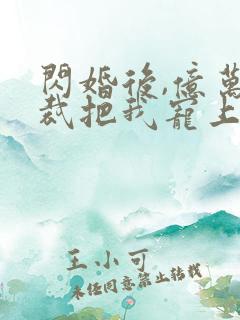 閃婚後,億萬
裁把我寵上
王小可
未經同意禁止轉載